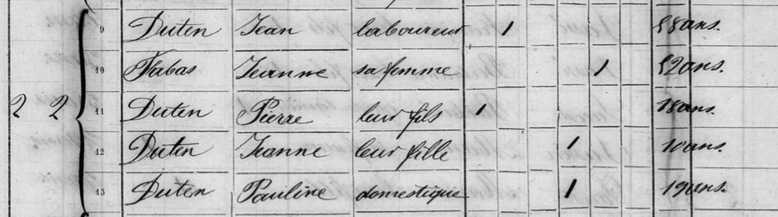 9 Duten Jean laboureur 1 58 ans.
10 Fabas Jeanne sa femme 1 52 ans.
2 2 11 Duten Pierre leur fils 1 18 ans.
12 Duten Jeanne leur fille 1 10 ans.
13 Duten Pauline domestique 1 19 ans.